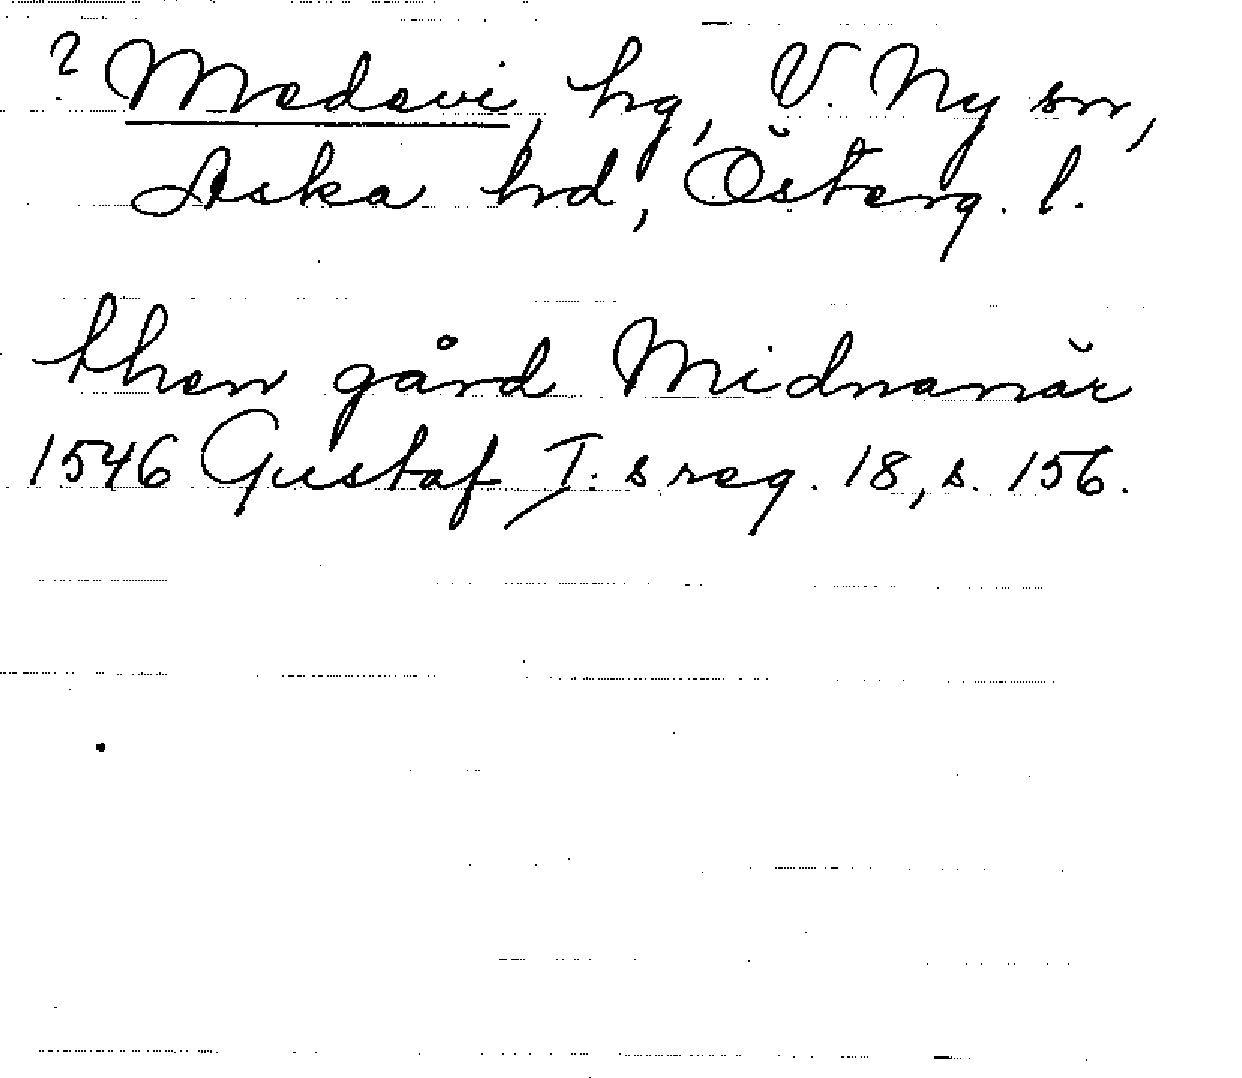 ? Medevi, hg, V. Ny sn,
Aska hd, Österg. l.
then gård Midnanär
1546 Gustaf I:s reg. 18, s. 156.